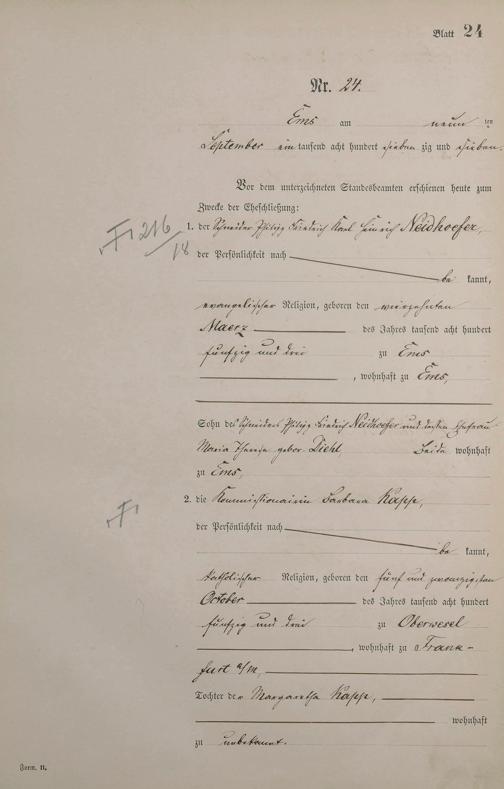 Blatt 24
Nr. 24.
Ems am neun ten
September ein tausend acht hundert sieben zig und sieben.
Vor dem unterzeichneten Standesbeamten erschienen heute zum
Zwecke der Eheschließung:
1. der Schneider Philipp Friedrich Karl Heinrich Neidhoefer,
F 216/18
der Persönlichkeit nach
be kannt,
evangelischer Religion, geboren den vierzehnten
Maerz des Jahres tausend acht hundert
fünfzig und drei zu Ems
, wohnhaft zu Ems,
Sohn des Schneiders Philipp Friedrich Neidhoefer und dessen Ehefrau
Maria Therese gebor. Diehl, Beide wohnhaft
zu Ems,
2. die Kommissionairin Barbara Kapp,
F
der Persönlichkeit nach
be kannt,
katholischer Religion, geboren den fünf und zwanzigsten
October des Jahres tausend acht hundert
fünfzig und drei zu Oberwesel
, wohnhaft zu Frank-
furt a/M,
Tochter der Margaretha Kapp,
wohnhaft
zu unbekannt.
Form. B.